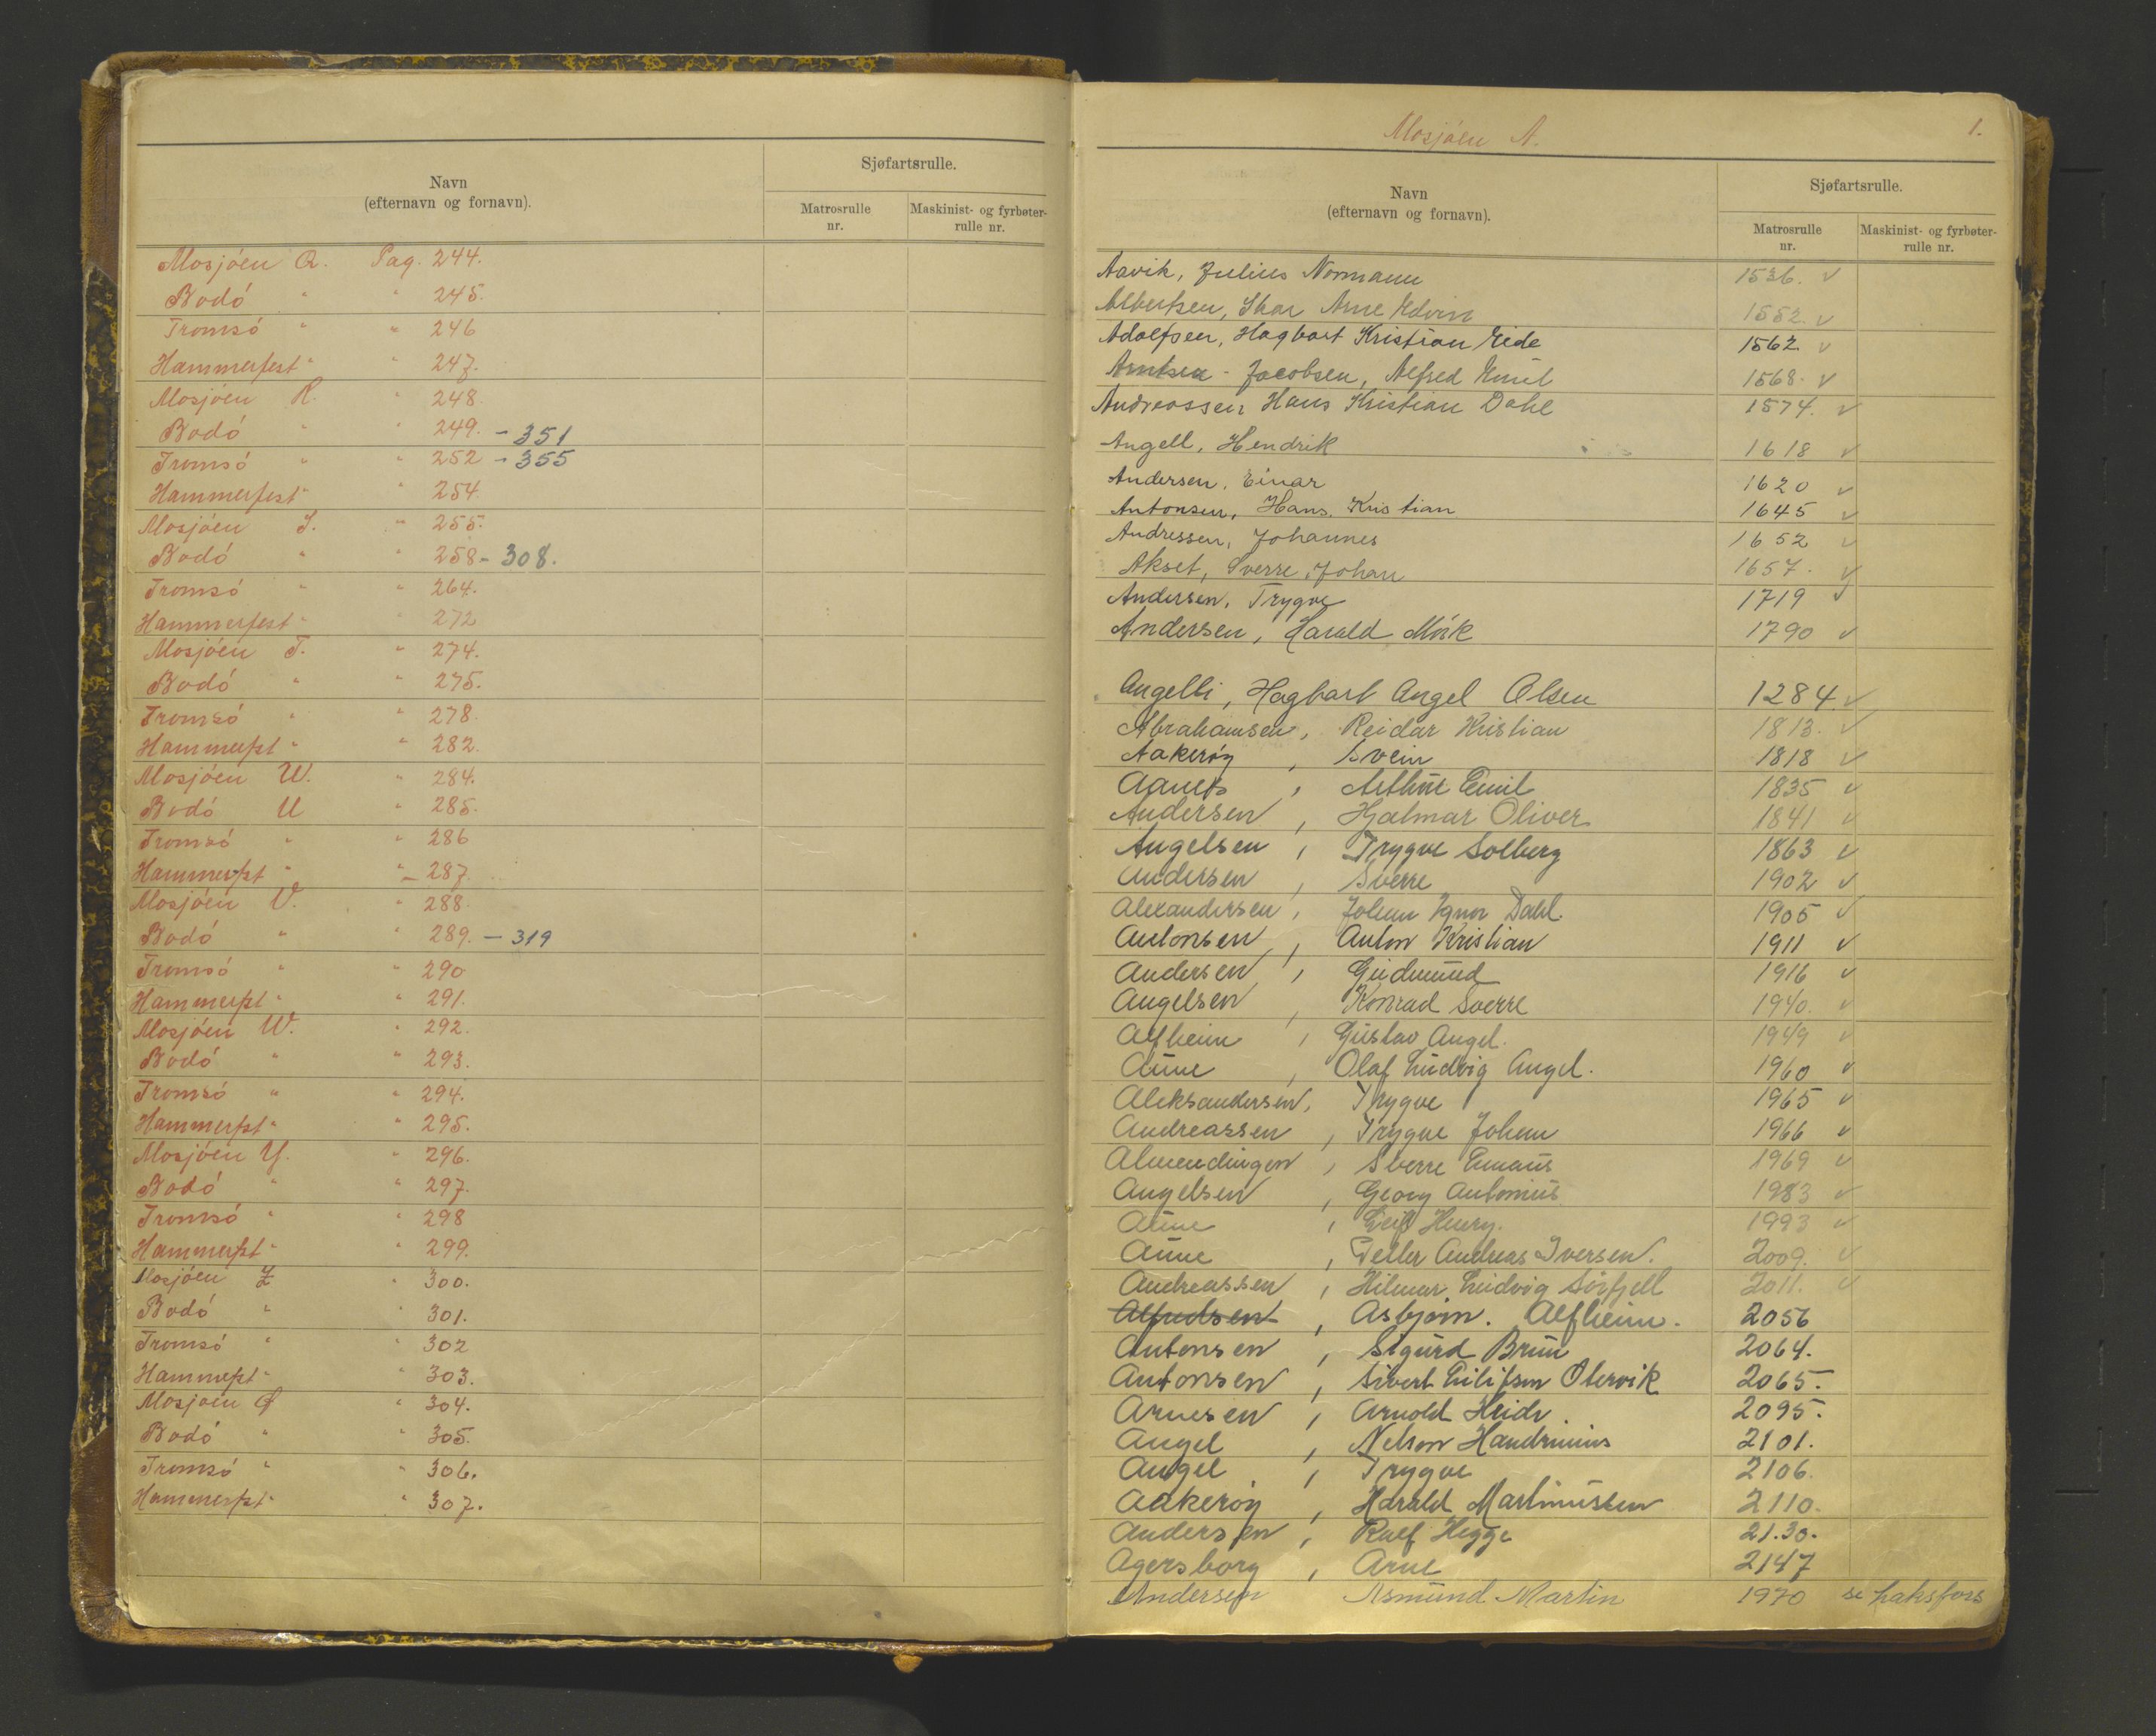 Navn
(efternavn og fornavn).
Sjøfartsrulle.
Matrosrulle
nr.
Maskinist- og fyrbøter-
rulle nr.
Mosjöen Q. Pag. 244.
Bodö " " 245.
Tromsö " " 246
Hammerfest " " 247.
Mosjöen R. " 248.
Bodö " " 249. - 351
Tromsö " " 252 - 355
Hammerfest " " 254.
Mosjöen S. " 255.
Bodö " " 258 - 308.
Tromsö " " 264.
Hammerfest " " 272
Mosjöen T. " 274.
Bodö " " 275.
Tromsö " " 278.
Hammerfest " " 282.
Mosjöen U. " 284.
Bodö U " 285.
Tromsö " " 286
Hammerfest " " 287.
Mosjöen V. " 288.
Bodö " " 289. - 319
Tromsö " " 290
Hammerfest " " 291.
Mosjöen W. " 292.
Bodö " " 293.
Tromsö " " 294.
Hammerfest " " 295.
Mosjöen Y. " 296.
Bodö " " 297.
Tromsö " " 298
Hammerfest " " 299.
Mosjöen Z " 300.
Bodö " " 301.
Tromsö " " 302
Hammerfest " " 303.
Mosjöen Ø " 304.
Bodö " " 305.
Tromsö " " 306.
Hammerfest " " 307.
Mosjöen A. 1.
Navn
(efternavn og fornavn).
Sjøfartsrulle.
Matrosrulle
nr.
Maskinist- og fyrbøter-
rulle nr.
Aavik, Julius Normann 1536. ✓
Albertsen, Arne Edvin 1552. ✓
Adolfsen, Hagbart Kristian Eide 1562. ✓
Arntsen - Jacobsen, Alfred Emil 1568. ✓
Andreassen Hans Kristian Dahl 1574. ✓
Angell, Hendrik 1618 ✓
Andersen, Einar 1620 ✓
Antonsen, Hans Kristian 1645 ✓
Andressen, Johannes 1652 ✓
Akset, Sverre Johan 1657. ✓
Andersen, Trygve 1719 ✓
Andersen, Harald Mörk 1790 ✓
Angelli, Hagbart Angel Olsen 1284 ✓
Abrahamsen, Reidar Kristian 1813. ✓
Aakerøy, Svein 1818 ✓
Aanes, Arthur Emil 1835 ✓
Andersen, Hjalmar Oliver 1841 ✓
Angelsen, Trygve Solberg 1863 ✓
Andersen, Sverre 1902 ✓
Alexandersen, Johan Dahl. 1905 ✓
Antonsen, Anton Kristian 1911 ✓
Andersen, Gudmund 1916 ✓
Angelsen, Konrad Sverre 1940. ✓
Alfheim, Gustav Angel. 1949 ✓
Aune, Olaf Ludvig Angel. 1960 ✓
Aleksandersen, Trygve 1965 ✓
Andreassen, Trygve Johan 1966 ✓
Almendingen, Sverre Emaus 1969 ✓
Angelsen, Georg Antonius 1983 ✓
Aune, Leif Henry. 1993 ✓
Aune, Petter Andreas Iversen. 2009. ✓
Andreassen, Hilmar Ludvig Sörfjell 2011. ✓
Alfredsen, Asbjörn. Alfheim. 2056
Antonsen, Sigurd Brun 2064.
Antonsen, Sivert Eilifsen Olervik 2065.
Arnesen, Arnold Heide. 2095.
Angel, Nelson 2101.
Angel, Trygve 2106.
Aakerøy, Harald Martinussen 2110.
Andersen, Ralf Hegge 21.30.
Agersborg, Arne 2147
Andersen Asmund Martin 1970 se Laksfors